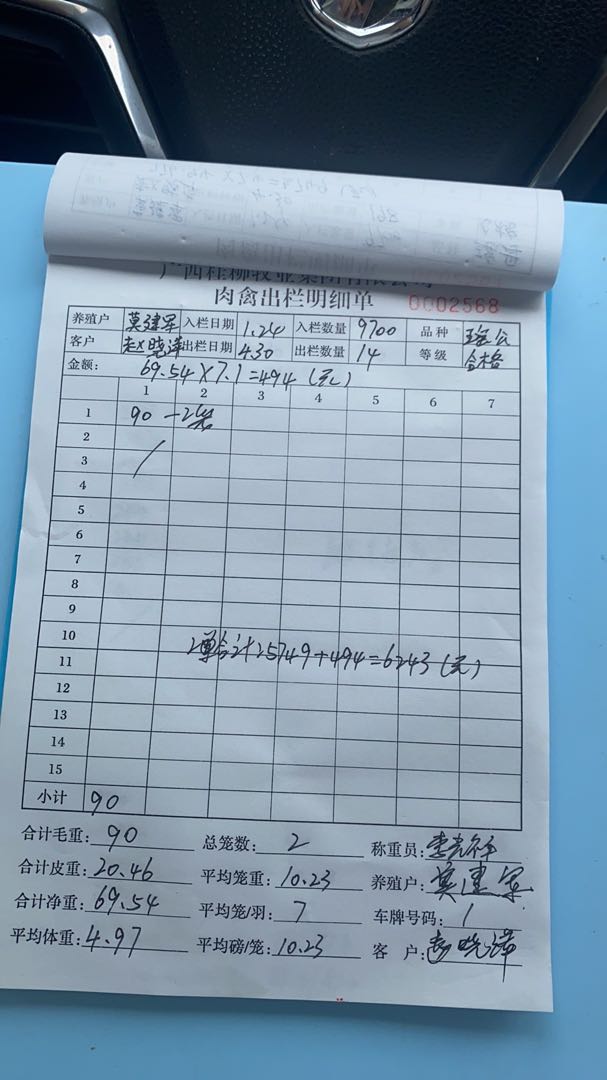 广西桂柳牧业集团有限公司
肉禽出栏明细单 0002568
养殖户 莫建军 入栏日期 1.24 入栏数量 9700 品种
客户 赵晓萍 出栏日期 4.30 出栏数量 14 等级 合格
金额: 69.54×7.1=494(元)
1 2 3 4 5 6 7
1 90 -2笼
2
3
4
5
6
7
8
9
10
11 2单合计:5749+494=6243(元)
12
13
14
15
小计 90
合计毛重: 90 总笼数: 2 称重员:
合计皮重: 20.46 平均笼重: 10.23 养殖户: 莫建军
合计净重: 69.54 平均笼/羽: 7 车牌号码: 1
平均体重: 4.97 平均磅/笼: 10.23 客户: 赵晓萍